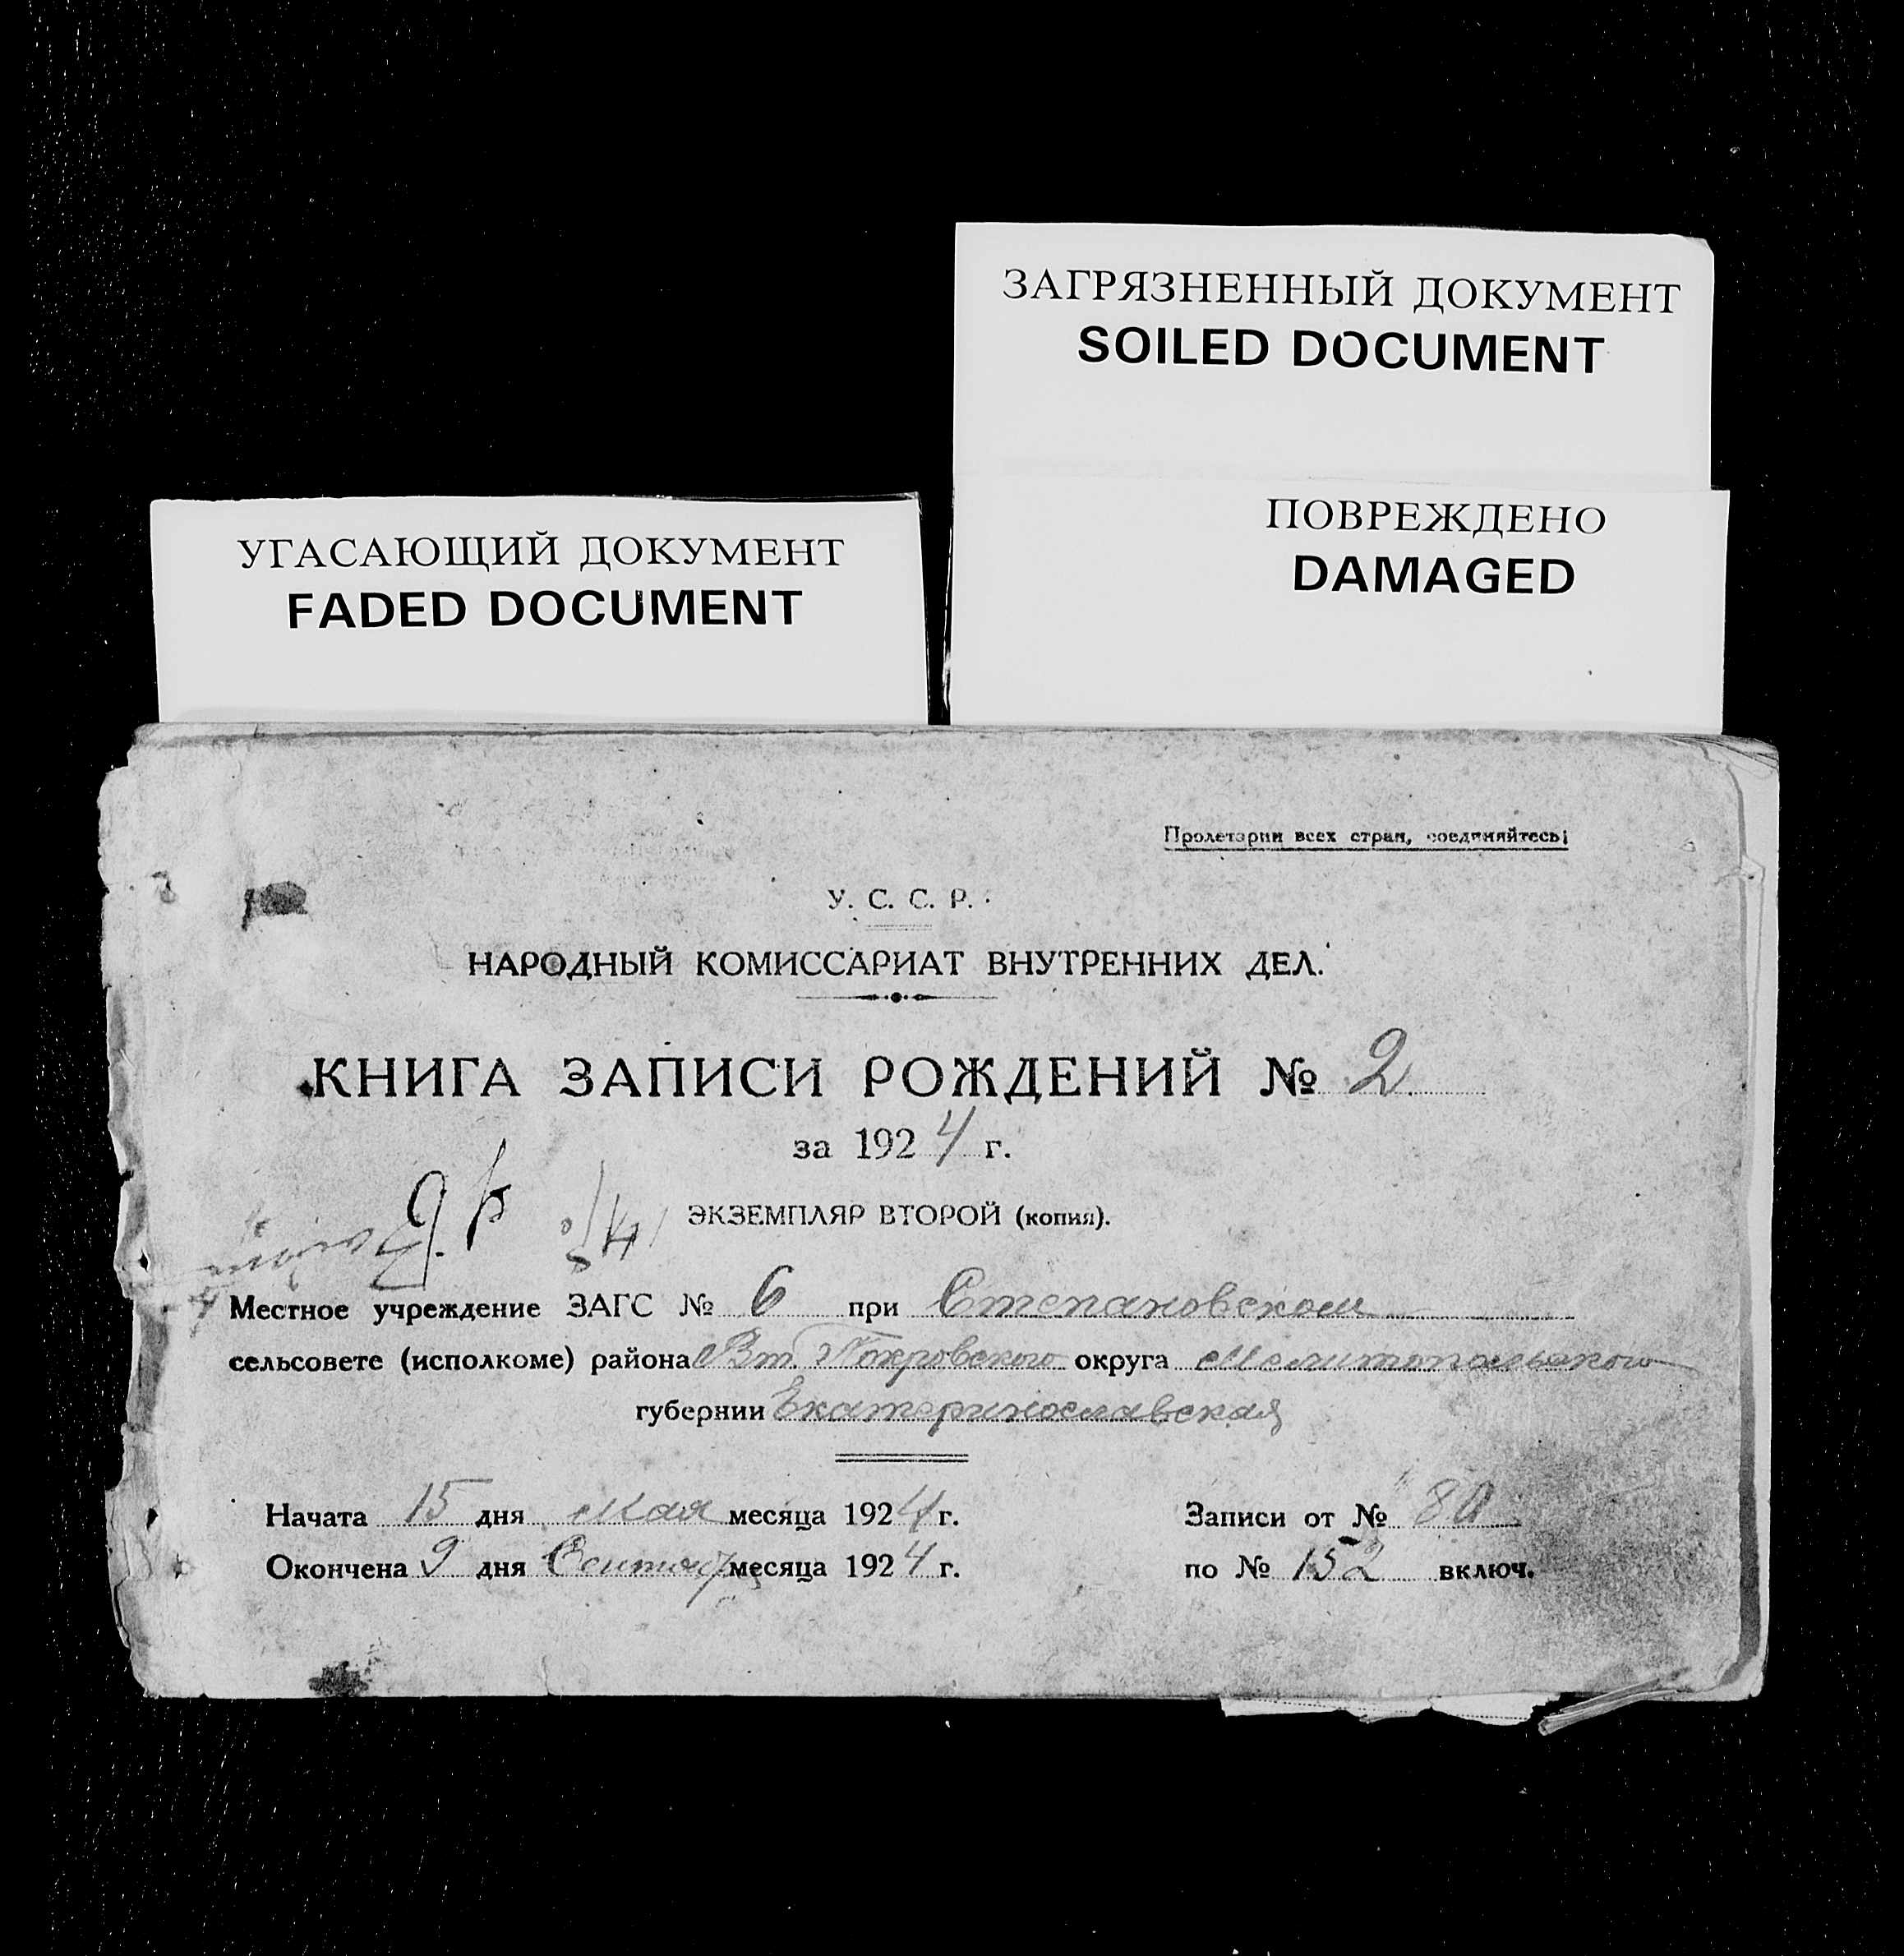 ЗАГРЯЗНЕННЫЙ ДОКУМЕНТ
SOILED DOCUMENT
ПОВРЕЖДЕНО
DAMAGED
УГАСАЮЩИЙ ДОКУМЕНТ
FADED DOCUMENT
Пролетарии всех стран, соединяйтесь!
У. С. С. Р.
НАРОДНЫЙ КОМИССАРИАТ ВНУТРЕННИХ ДЕЛ.
КНИГА ЗАПИСИ РОЖДЕНИЙ № 2
за 1924 г.
ЭКЗЕМПЛЯР ВТОРОЙ (копия).
Местное учреждение ЗАГС № 6 при Степановском
сельсовете (исполкоме) района Вт. Покровского округа Мелитопольского
губернии Екатеринославская
Начата 15 дня Мая месяца 1924 г.
Окончена 9 дня месяца 1924 г.
Записи от № 80
по № 152 включ.